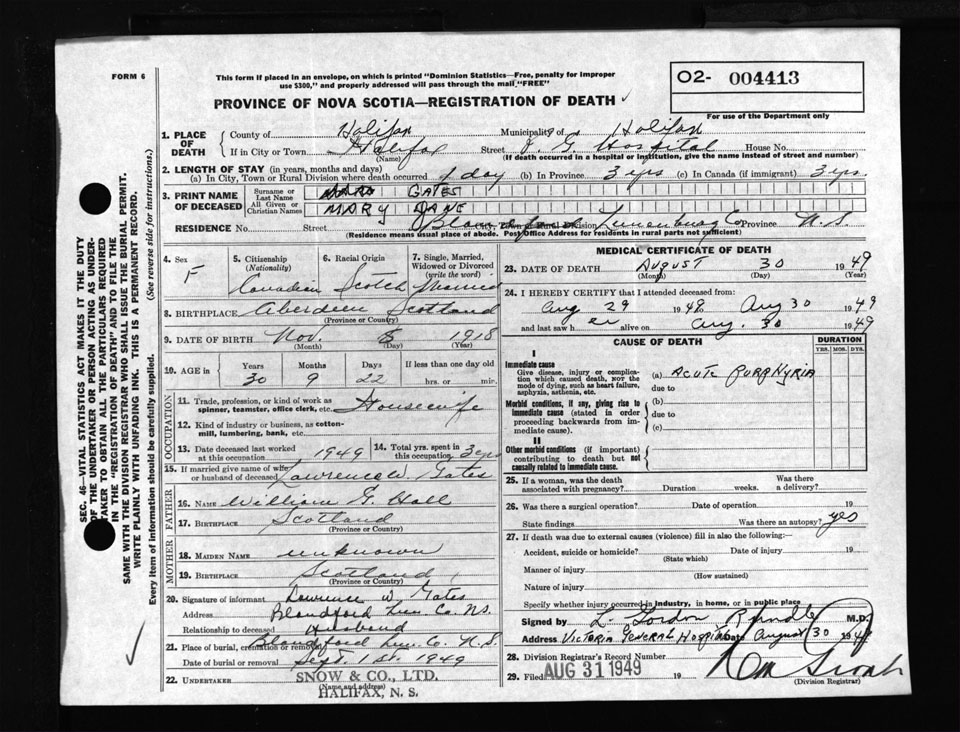 FORM 6
This form if placed in an envelope, on which is printed "Dominion Statistics—Free, penalty for improper
use $300," and properly addressed will pass through the mail "FREE"
O2- 004413
For use of the Department only
PROVINCE OF NOVA SCOTIA—REGISTRATION OF DEATH
1. PLACE OF DEATH
County of Halifax Municipality of Halifax
If in City or Town Halifax Street V. G. Hospital House No.
(Name) (If death occurred in a hospital or institution, give the name instead of street and number)
2. LENGTH OF STAY (in years, months and days)
(a) In City, Town or Rural Division where death occurred 1 day (b) In Province 3 yrs (c) In Canada (if immigrant) 3 yrs.
3. PRINT NAME OF DECEASED
Surname or Last Name GATES
All Given or Christian Names MARY JANE
RESIDENCE No. Street Blandford Lunenburg Co Province N.S.
(City, Town or Rural Div.)
(Residence means usual place of abode. Post Office Address for residents in rural parts not sufficient)
4. Sex
F
5. Citizenship
(Nationality)
Canadian
6. Racial Origin
Scotch
7. Single, Married,
Widowed or Divorced
(write the word)
Married
8. BIRTHPLACE Aberdeen Scotland
(Province or Country)
9. DATE OF BIRTH Nov. 8 1918
(Month) (Day) (Year)
10. AGE in
Years Months Days If less than one day old
30 9 22 hrs. or min.
OCCUPATION
11. Trade, profession, or kind of work as
spinner, teamster, office clerk, etc. Housewife
12. Kind of industry or business, as cotton-
mill, lumbering, bank, etc.
13. Date deceased last worked
at this occupation 1949
14. Total yrs. spent in
this occupation 3 yrs
15. If married give name of wife
or husband of deceased Lawrence W. Gates
FATHER
16. NAME William G. Hall
17. BIRTHPLACE Scotland
(Province or Country)
MOTHER
18. MAIDEN NAME unknown
19. BIRTHPLACE Scotland
(Province or Country)
20. Signature of informant Lawrence W. Gates
Address Blandford Lun. Co. N.S.
Relationship to deceased Husband
21. Place of burial, cremation or removal Blandford Lun. Co. N.S.
Date of burial or removal Sept. 1st. 1949
22. UNDERTAKER SNOW & CO., LTD.
(Name and address)
HALIFAX, N. S.
MEDICAL CERTIFICATE OF DEATH
23. DATE OF DEATH August 30 1949
(Month) (Day) (Year)
24. I HEREBY CERTIFY that I attended deceased from:
Aug 29 1949 to Aug 30 1949
and last saw her alive on Aug. 30 1949
CAUSE OF DEATH
DURATION
YRS. MOS. DYS.
I
Immediate cause
Give disease, injury or compli-
cation which caused death, NOT the
mode of dying, such as heart failure,
asphyxia, asthenia, etc.
(a) ACUTE PORPHYRIA
due to
Morbid conditions, if any, giving rise to
immediate cause (stated in order
proceeding backwards from im-
mediate cause).
(b)
due to
(c)
II
Other morbid conditions (if important)
contributing to death but not
causally related to immediate cause.
25. If a woman, was the death
associated with pregnancy? Duration weeks. Was there
a delivery?
26. Was there a surgical operation? Date of operation 19
State findings Was there an autopsy? yes
27. If death was due to external causes (violence) fill in also the following:
Accident, suicide or homicide? Date of injury 19
(State which)
Manner of injury
(How sustained)
Nature of injury
Specify whether injury occurred in industry, in home, or in public place
Signed by L. Gordon M.D.
Address VICTORIA GENERAL HOSPITAL Date August 30 1949
28. Division Registrar's Record Number
29. Filed AUG 31 1949 19
(Division Registrar)
SEC. 46—VITAL STATISTICS ACT MAKES IT THE DUTY
OF THE UNDERTAKER OR PERSON ACTING AS UNDER-
TAKER TO OBTAIN ALL THE PARTICULARS REQUIRED
IN THE "REGISTRATION OF DEATH" AND TO FILE THE
SAME WITH THE DIVISION REGISTRAR WHO SHALL ISSUE THE BURIAL PERMIT.
WRITE PLAINLY WITH UNFADING INK. THIS IS A PERMANENT RECORD.
Every item of information should be carefully supplied. (See reverse side for instructions.)